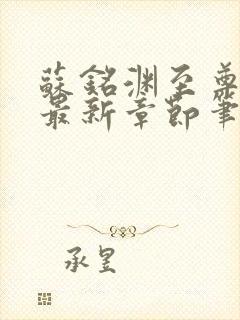 蘇銘淵至尊
最新章節筆
承昱